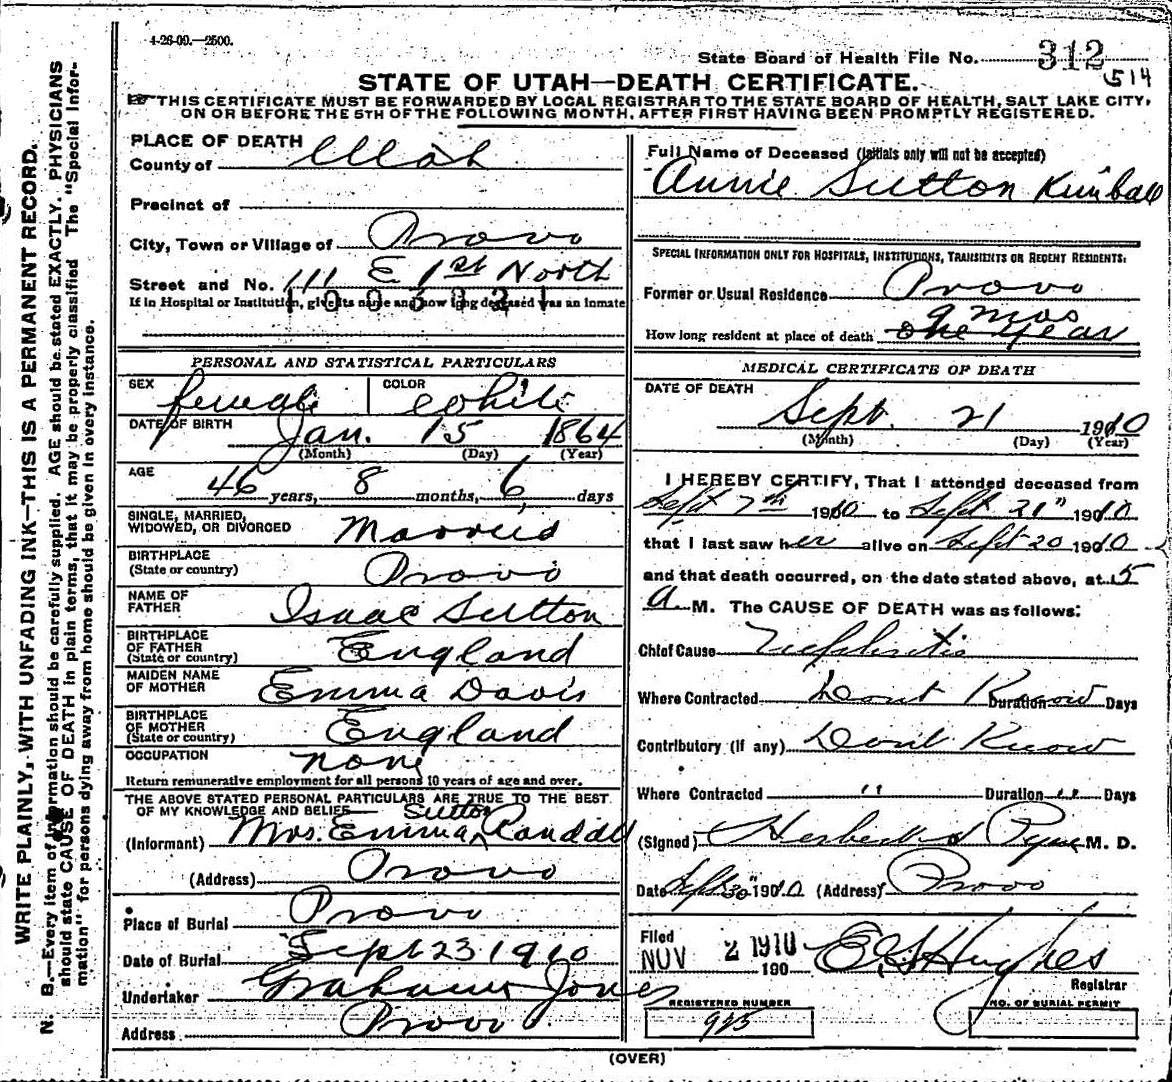 4-26-09.—2500.
State Board of Health File No. 312
514
STATE OF UTAH—DEATH CERTIFICATE.
THIS CERTIFICATE MUST BE FORWARDED BY LOCAL REGISTRAR TO THE STATE BOARD OF HEALTH, SALT LAKE CITY,
ON OR BEFORE THE 5TH OF THE FOLLOWING MONTH, AFTER FIRST HAVING BEEN PROMPTLY REGISTERED.
WRITE PLAINLY, WITH UNFADING INK—THIS IS A PERMANENT RECORD.
N. B.—Every item of information should be carefully supplied. AGE should be stated EXACTLY. PHYSICIANS
should state CAUSE OF DEATH in plain terms, that it may be properly classified. The "Special Infor-
mation" for persons dying away from home should be given in every instance.
PLACE OF DEATH
County of Utah
Precinct of
City, Town or Village of Provo
Street and No. 111 E 1st North
If in Hospital or Institution, give its name and how long deceased was an inmate
PERSONAL AND STATISTICAL PARTICULARS
SEX female COLOR white
DATE OF BIRTH Jan. 15 1864
(Month) (Day) (Year)
AGE 46 years, 8 months, 6 days
SINGLE, MARRIED,
WIDOWED, OR DIVORCED Married
BIRTHPLACE
(State or country) Provo
NAME OF
FATHER Isaac Sutton
BIRTHPLACE
OF FATHER
(State or country) England
MAIDEN NAME
OF MOTHER Emma Davis
BIRTHPLACE
OF MOTHER
(State or country) England
OCCUPATION none
Return remunerative employment for all persons 10 years of age and over.
THE ABOVE STATED PERSONAL PARTICULARS ARE TRUE TO THE BEST
OF MY KNOWLEDGE AND BELIEF
(Informant) Mrs. Emma Sutton Randall
(Address) Provo
Place of Burial Provo
Date of Burial Sept 23 1910
Undertaker Graham Jones
Address Provo
Full Name of Deceased (Initials only will not be accepted)
Annie Sutton Kimball
SPECIAL INFORMATION ONLY FOR HOSPITALS, INSTITUTIONS, TRANSIENTS OR RECENT RESIDENTS:
Former or Usual Residence Provo
9 mos
How long resident at place of death one year
MEDICAL CERTIFICATE OF DEATH
DATE OF DEATH
Sept. 21 1910
(Month) (Day) (Year)
I HEREBY CERTIFY, That I attended deceased from
Sept 7th 1910 to Sept 21" 1910
that I last saw her alive on Sept 20 1910
and that death occurred, on the date stated above, at 5
a M. The CAUSE OF DEATH was as follows:
Chief Cause Nephritis
Where Contracted Dont Know Duration Days
Contributory (if any) Dont Know
Where Contracted " Duration " Days
(Signed) Herbert S Pyne M. D.
Date Sept 30" 1910 (Address) Provo
Filed
NOV 2 1910 190 E. S Hughes
Registrar
REGISTERED NUMBER
925
NO. OF BURIAL PERMIT
(OVER)